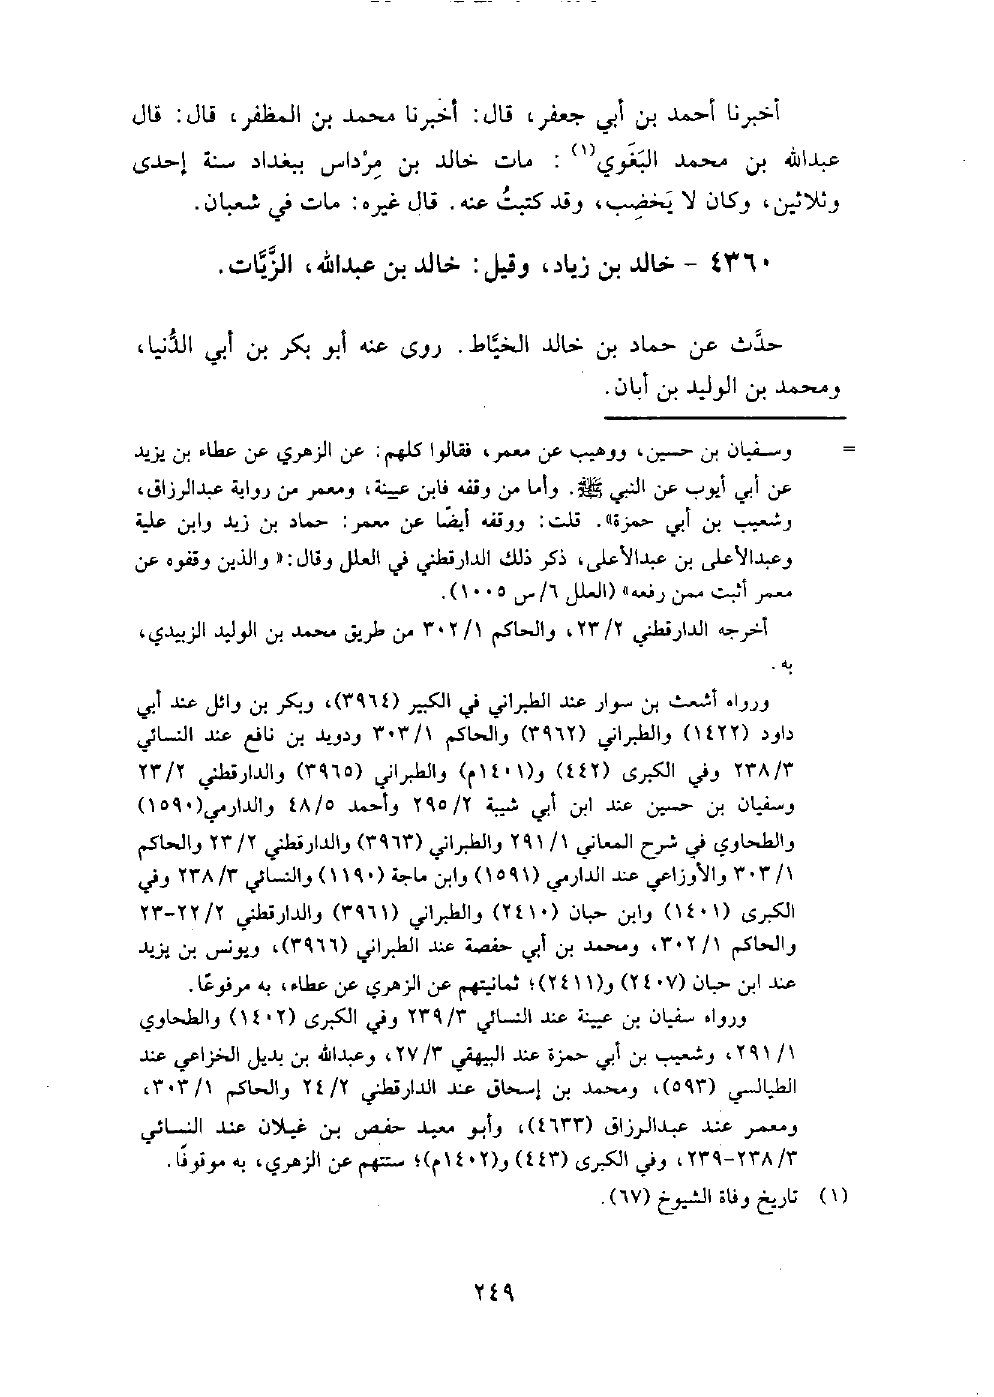 أخبرنا أحمد بن أبي جعفر، قال: أخبرنا محمد بن المظفر، قال: قال
عبدالله بن محمد البَغَوي(١) : مات خالد بن مِرْداس ببغداد سنة إحدى
وثلاثين، وكان لا يَخضِب، وقد كتبتُ عنه. قال غيره: مات في شعبان.
٤٣٦٠ - خالد بن زياد، وقيل: خالد بن عبدالله، الزَّيَّات.
حدَّث عن حماد بن خالد الخيَّاط. روى عنه أبو بكر بن أبي الدُّنيا،
ومحمد بن الوليد بن أبان.
= وسفيان بن حسين، ووهيب عن معمر، فقالوا كلهم: عن الزهري عن عطاء بن يزيد
عن أبي أيوب عن النبي ﷺ. وأما من وقفه فابن عيينة، ومعمر من رواية عبدالرزاق،
وشعيب بن أبي حمزة». قلت: ووقفه أيضًا عن معمر: حماد بن زيد وابن علية
وعبدالأعلى بن عبدالأعلى، ذكر ذلك الدارقطني في العلل وقال:« والذين وقفوه عن
معمر أثبت ممن رفعه» (العلل ٦/ س ١٠٠٥).
أخرجه الدارقطني ٢/ ٢٣، والحاكم ١/ ٣٠٢ من طريق محمد بن الوليد الزبيدي،
به.
ورواه أشعث بن سوار عند الطبراني في الكبير (٣٩٦٤)، وبكر بن وائل عند أبي
داود (١٤٢٢) والطبراني (٣٩٦٢) والحاكم ١/ ٣٠٣ ودويد بن نافع عند النسائي
٣/ ٢٣٨ وفي الكبرى (٤٤٢) و(١٤٠١م) والطبراني (٣٩٦٥) والدارقطني ٢/ ٢٣
وسفيان بن حسين عند ابن أبي شيبة ٢/ ٢٩٥ وأحمد ٥/ ٤٨ والدارمي(١٥٩٠)
والطحاوي في شرح المعاني ١/ ٢٩١ والطبراني (٣٩٦٣) والدارقطني ٢/ ٢٣ والحاكم
١/ ٣٠٣ والأوزاعي عند الدارمي (١٥٩١) وابن ماجة (١١٩٠) والنسائي ٣/ ٢٣٨ وفي
الكبرى (١٤٠١) وابن حبان (٢٤١٠) والطبراني (٣٩٦١) والدارقطني ٢/ ٢٢-٢٣
والحاكم ١/ ٣٠٢، ومحمد بن أبي حفصة عند الطبراني (٣٩٦٦)، ويونس بن يزيد
عند ابن حبان (٢٤٠٧) و(٢٤١١)؛ ثمانيتهم عن الزهري عن عطاء، به مرفوعًا.
ورواه سفيان بن عيينة عند النسائي ٣/ ٢٣٩ وفي الكبرى (١٤٠٢) والطحاوي
١/ ٢٩١، وشعيب بن أبي حمزة عند البيهقي ٣/ ٢٧، وعبدالله بن بديل الخزاعي عند
الطيالسي (٥٩٣)، ومحمد بن إسحاق عند الدارقطني ٢/ ٢٤ والحاكم ١/ ٣٠٣،
ومعمر عند عبدالرزاق (٤٦٣٣)، وأبو معيد حفص بن غيلان عند النسائي
٣/ ٢٣٨-٢٣٩، وفي الكبرى (٤٤٣) و(١٤٠٢م)؛ ستتهم عن الزهري، به موقوفًا.
(١) تاريخ وفاة الشيوخ (٦٧).
٢٤٩